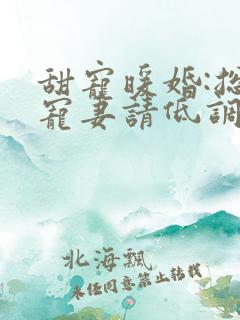 甜寵暖婚:總
寵妻請低調
北海飄
未经同意禁止转载